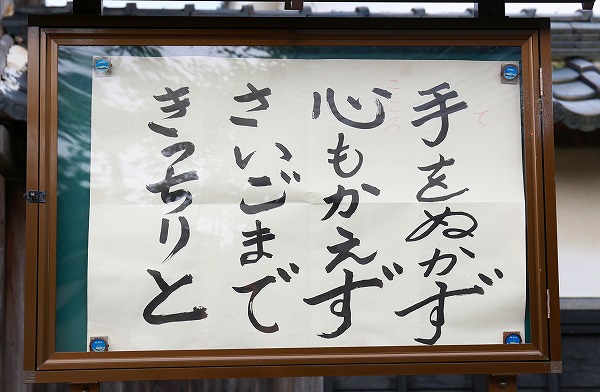 手をぬかず
て
心もかえず
こころ
さいごまで
きっちりと